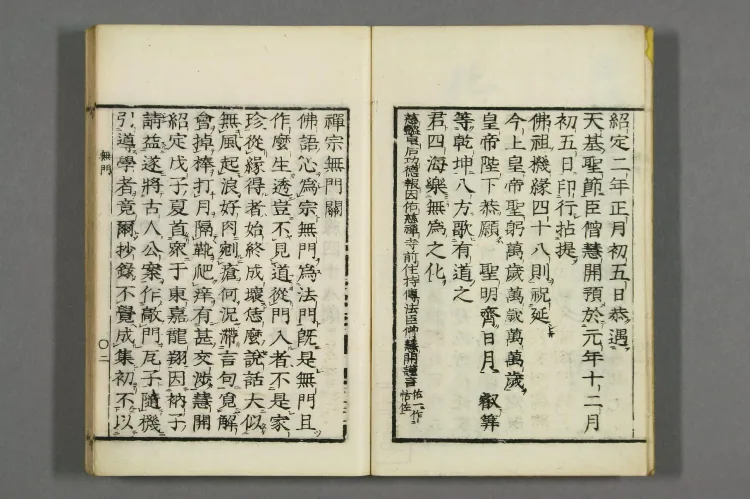 紹定二年正月初五日恭遇
天基聖節臣僧慧開預於元年十二月
初五日印行拈提
佛祖機緣四十八則祝延
今上皇帝聖躬萬歲萬歲萬萬歲
皇帝陛下恭願聖明齊日月叡算
等乾坤八方歌有道之
君四海樂無為之化
慈懿皇后功德報因佑慈禪寺前住持傳法臣僧慧開謹言
佑一作
怙佐
禪宗無門關
佛語心為宗無門為法門既是無門且
作麼生透豈不見道從門入者不是家
珍從緣得者始終成壞恁麼說話大似
無風起浪好肉剜瘡何況滯言句覓解
會掉棒打月隔靴爬痒有甚交涉慧開
紹定戊子夏首衆于東嘉龍翔因衲子
請益遂將古人公案作敲門瓦子隨機
引導學者竟爾抄錄不覺成集初不以
無門
〇二